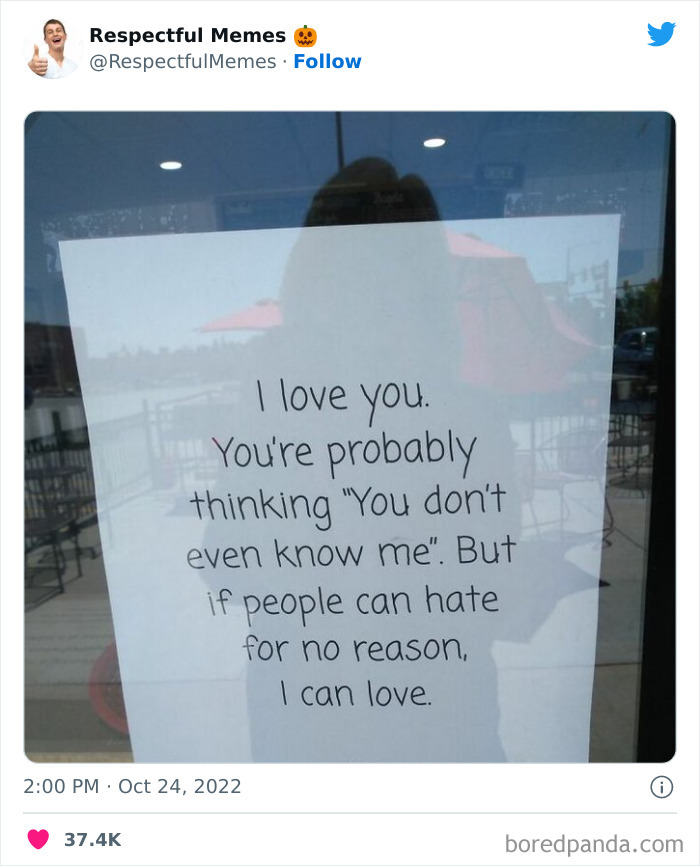 Respectful Memes 🎃
@RespectfulMemes · Follow
I love you.
You're probably
thinking "You don't
even know me". But
if people can hate
for no reason,
I can love.
2:00 PM · Oct 24, 2022
37.4K
boredpanda.com